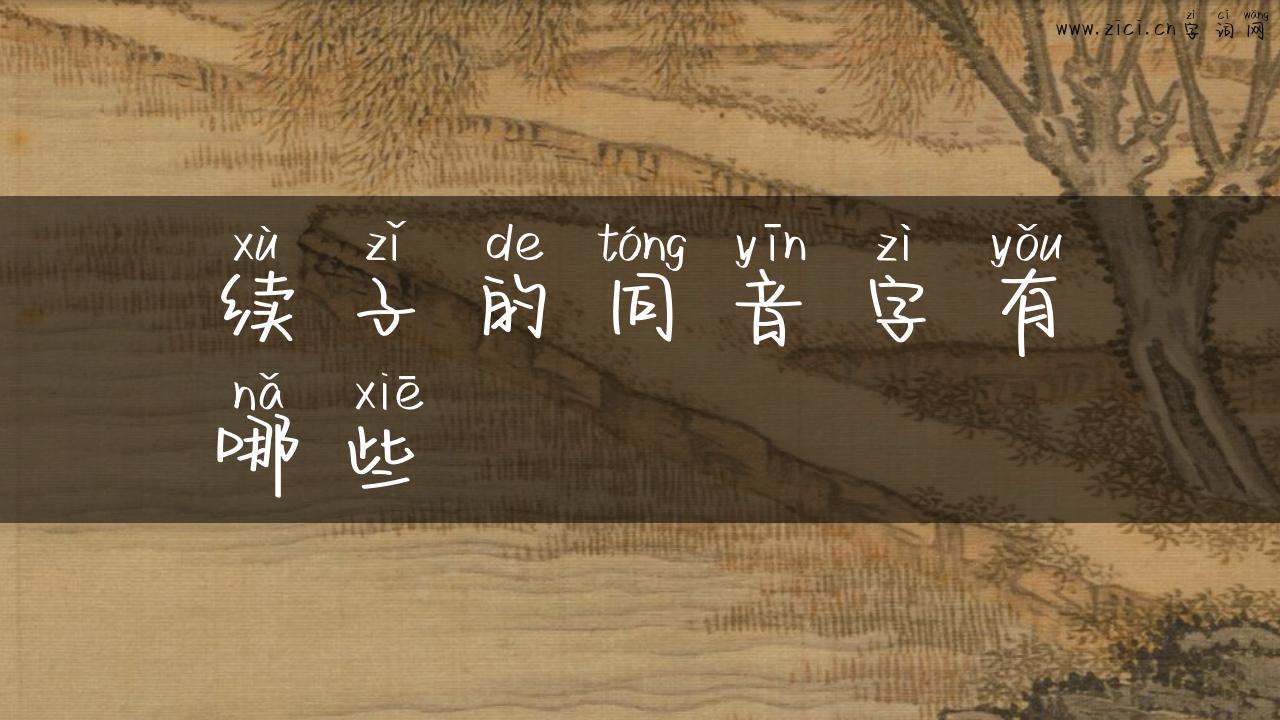 zì cí wǎng
www.zici.cn 字 词 网
xù zǐ de tóng yīn zì yǒu
续 子 的 同 音 字 有
nǎ xiē
哪 些